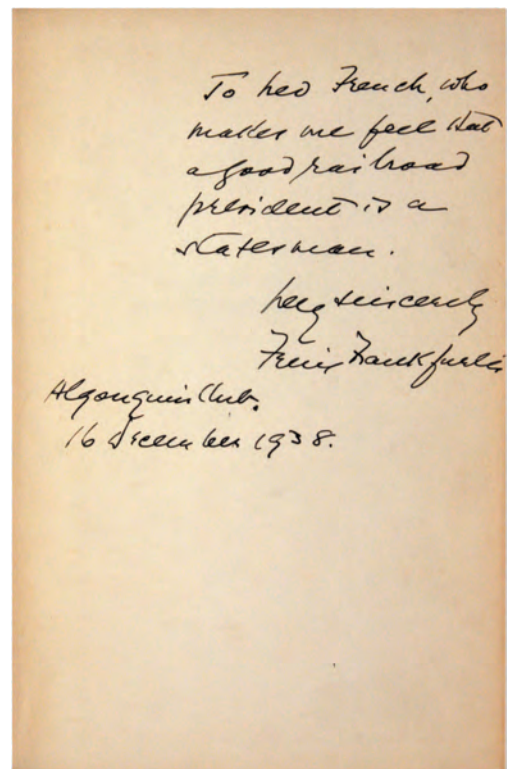 To Ned French, who
makes me feel that
a good railroad
president is a
statesman.
Very sincerely
Felix Frankfurter
Algonquin Club.
16 December 1938.